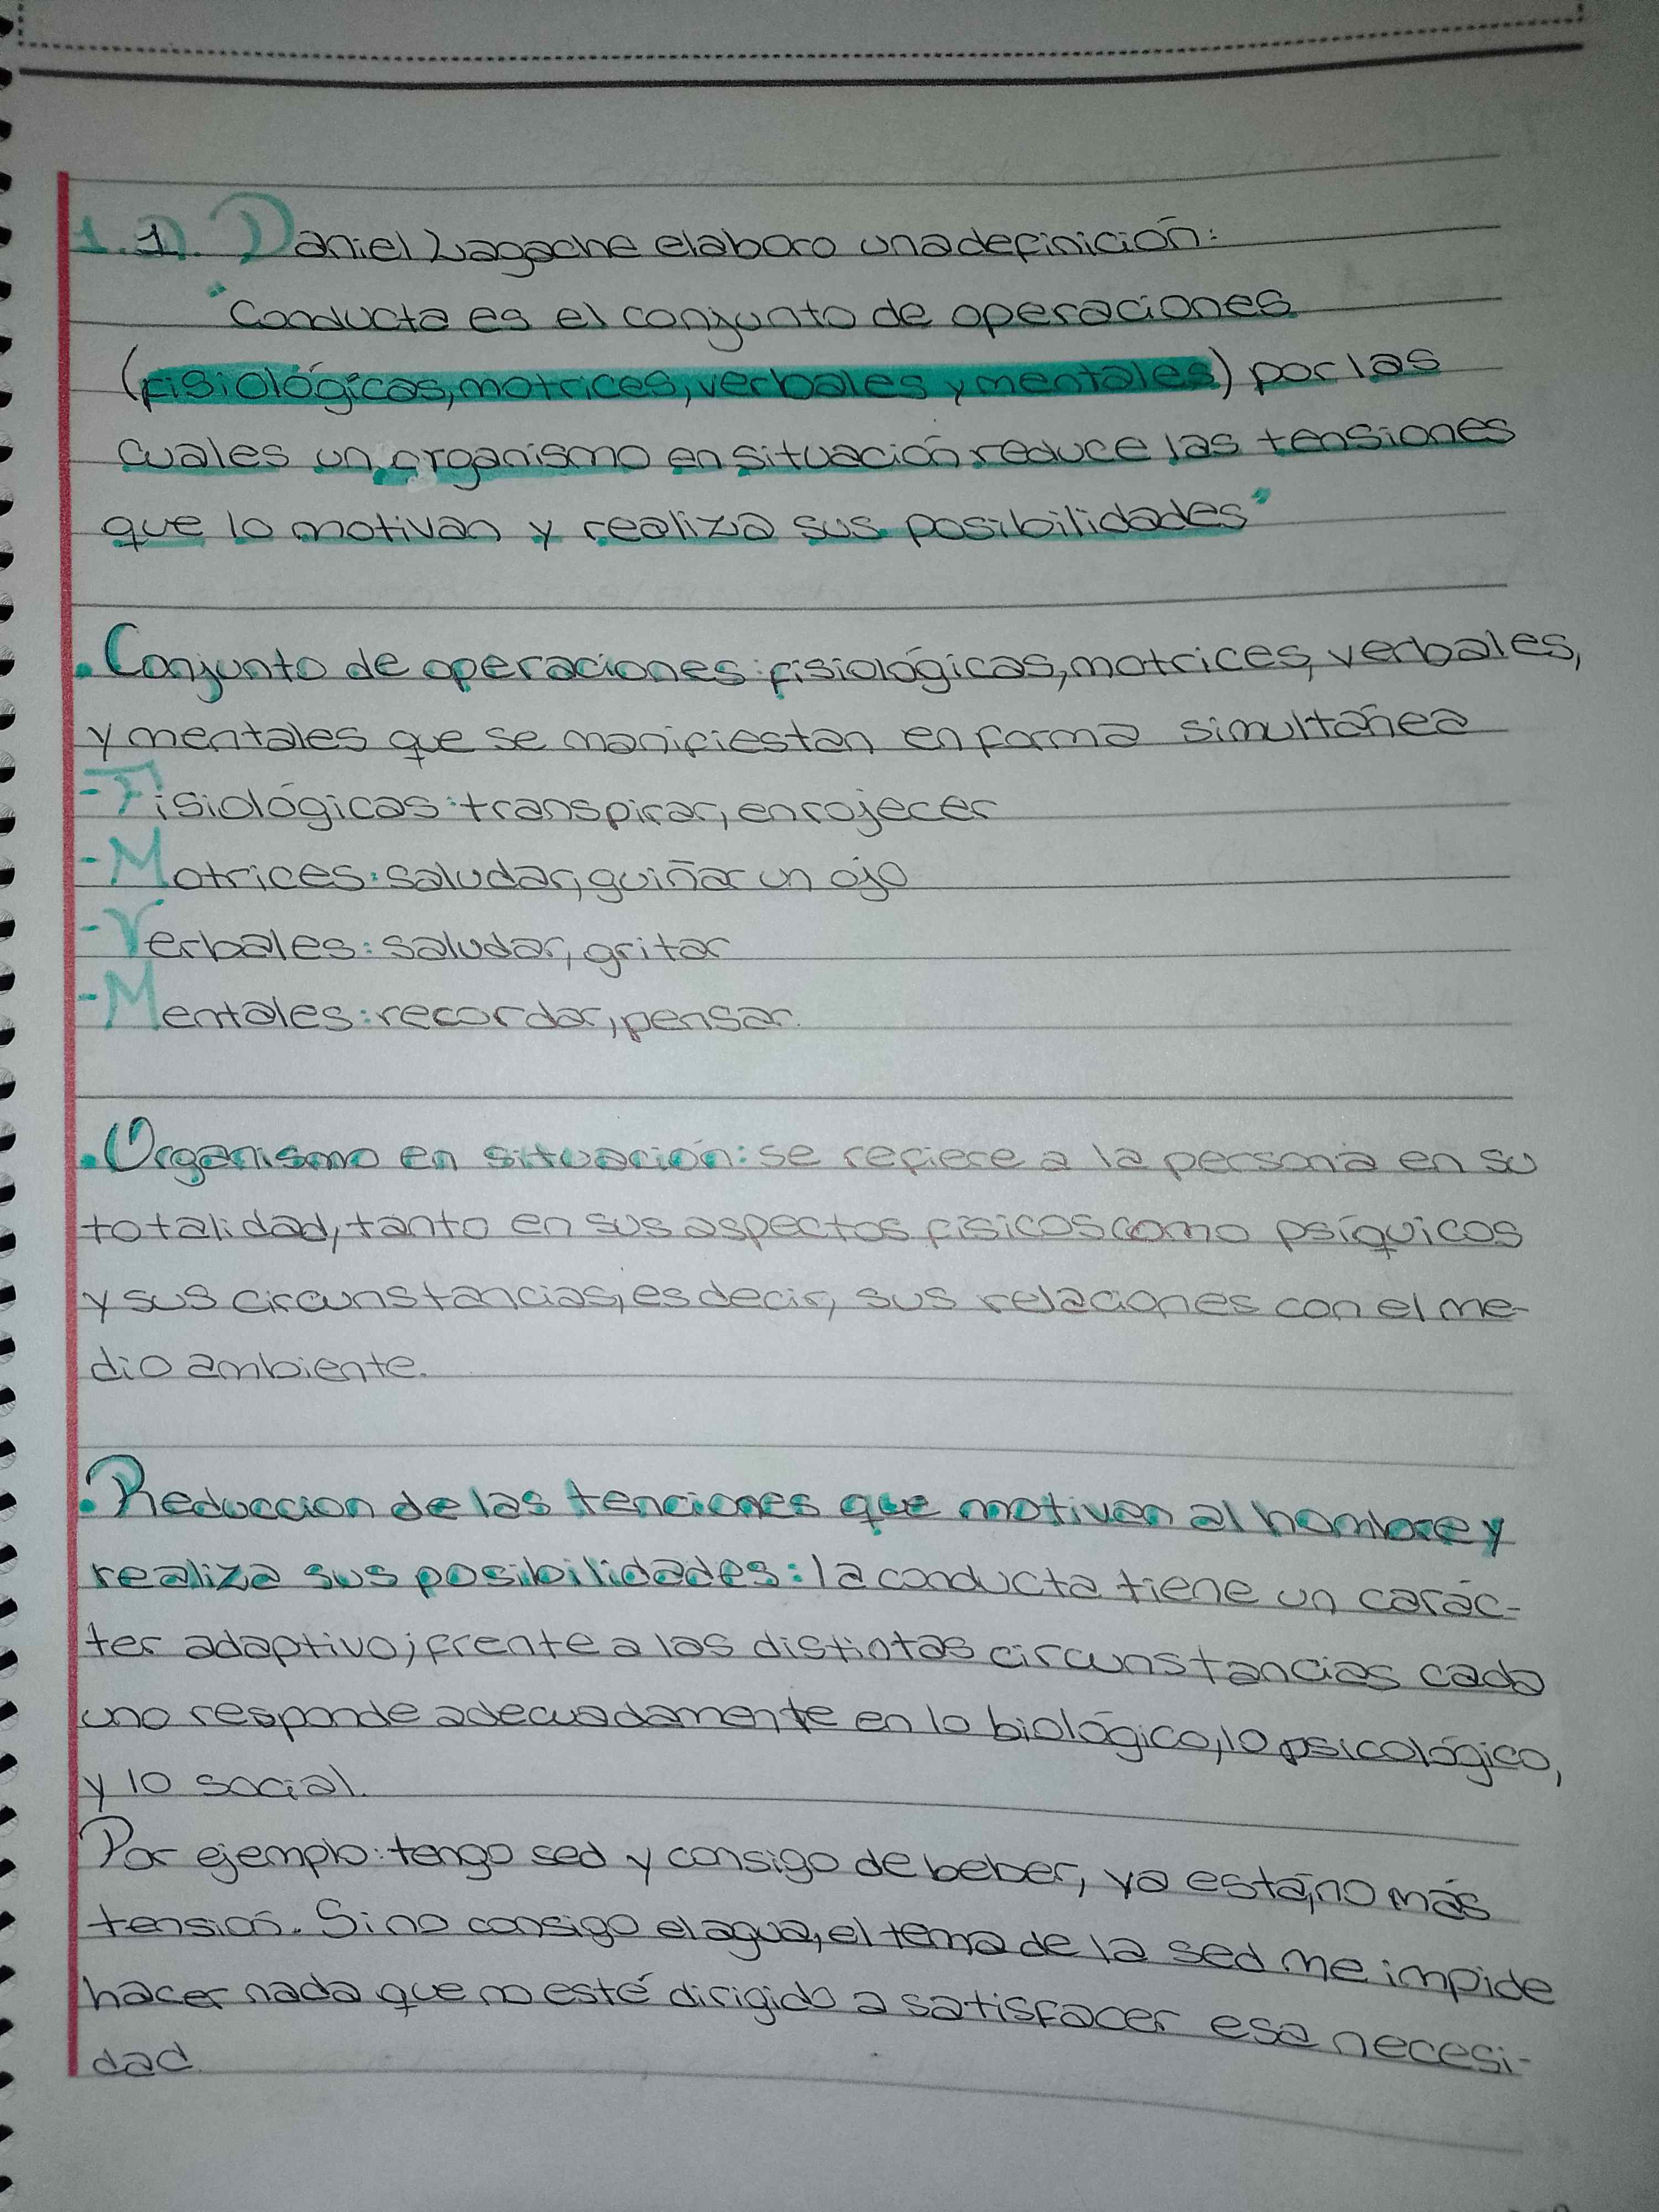 1.1. Daniel Lagache elaboro una definición:
"Conducta es el conjunto de operaciones
(fisiológicas, motrices, verbales y mentales) por las
cuales un organismo en situación reduce las tensiones
que lo motivan y realiza sus posibilidades"
. Conjunto de operaciones: fisiológicas, motrices, verbales,
y mentales que se manifiestan en forma simultánea
- Fisiológicas: transpirar, enrojecer
- Motrices: saludar, guiñar un ojo
- Verbales: saludar, gritar
- Mentales: recordar, pensar.
. Organismo en situación: se refiere a la persona en su
totalidad, tanto en sus aspectos físicos como psíquicos
y sus circunstancias, es decir, sus relaciones con el me-
dio ambiente.
. Reduccion de las tenciones que motivan al hombre y
realiza sus posibilidades: la conducta tiene un carác-
ter adaptivo; frente a las distintas circunstancias cada
uno responde adecuadamente en lo biológico, lo psicológico,
y lo social.
Por ejemplo: tengo sed y consigo de beber, ya está, no más
tensión. Si no consigo el agua, el tema de la sed me impide
hacer nada que no esté dirigido a satisfacer esa necesi-
dad.